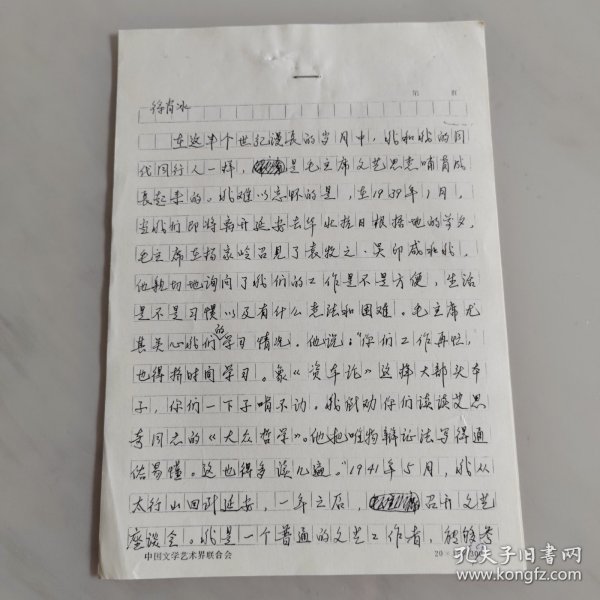 第 页
徐肖冰
在这半个世纪漫长的岁月中,我和我的同
代同行人一样,是毛主席文艺思想哺育成
长起来的。我难以忘怀的是,在1939年1月,
当我们即将离开延安去华北抗日根据地的前夕,
毛主席在杨家岭召见了袁牧之、吴印咸和我,
他亲切地询问了我们的工作是不是方便,生活
是不是习惯以及有什么想法和困难。毛主席尤
其关心我们的学习情况。他说:“你们工作再忙,
也得挤时间学习。象《资本论》这样大部头本
子,你们一下子啃不动。我就劝你们读读艾思
奇同志的《大众哲学》。他把唯物辩证法写得通
俗易懂。这也得多读几遍。”1941年5月,我从
太行山回到延安,一年之后,召开文艺
座谈会。我是一个普通的文艺工作者,能够参
中国文学艺术界联合会
20
孔夫子旧书网
www.kongfz.com